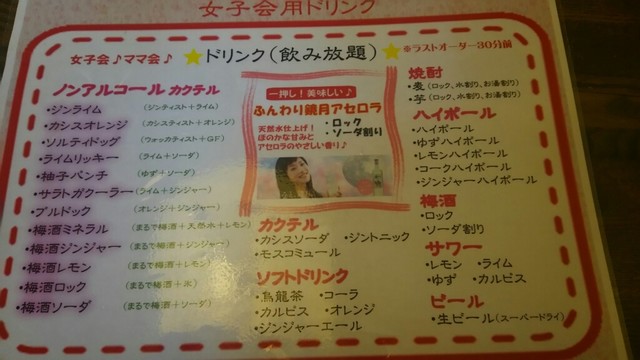 女子会用ドリンク
女子会♪ママ会♪ ★ドリンク(飲み放題)★ ※ラストオーダー30分前
ノンアルコール カクテル
・ジンライム (ジンティスト+ライム)
・カシスオレンジ (カシスティスト+オレンジ)
・ソルティドッグ (ウォッカティスト+GF)
・ライムリッキー (ライム+ソーダ)
・柚子パンチ (ゆず+ソーダ)
・サラトガクーラー (ライム+ジンジャー)
・ブルドック (オレンジ+ジンジャー)
・梅酒ミネラル (まるで梅酒+天然水+レモン)
・梅酒ジンジャー (まるで梅酒+ジンジャー)
・梅酒レモン (まるで梅酒+レモン)
・梅酒ロック (まるで梅酒+氷)
・梅酒ソーダ (まるで梅酒+ソーダ)
一押し!美味しい♪
ふんわり鏡月アセロラ
・ロック
・ソーダ割り
天然水仕上げ!
ほのかな甘みと
アセロラのやさしい香り♪
カクテル
・カシスソーダ ・ジントニック
・モスコミュール
ソフトドリンク
・烏龍茶 ・コーラ
・カルピス ・オレンジ
・ジンジャーエール
焼酎
・麦(ロック、水割り、お湯割り)
・芋(ロック、水割り、お湯割り)
ハイボール
・ハイボール
・ゆずハイボール
・レモンハイボール
・コークハイボール
・ジンジャーハイボール
梅酒
・ロック
・ソーダ割り
サワー
・レモン ・ライム
・ゆず ・カルピス
ビール
・生ビール(スーパードライ)